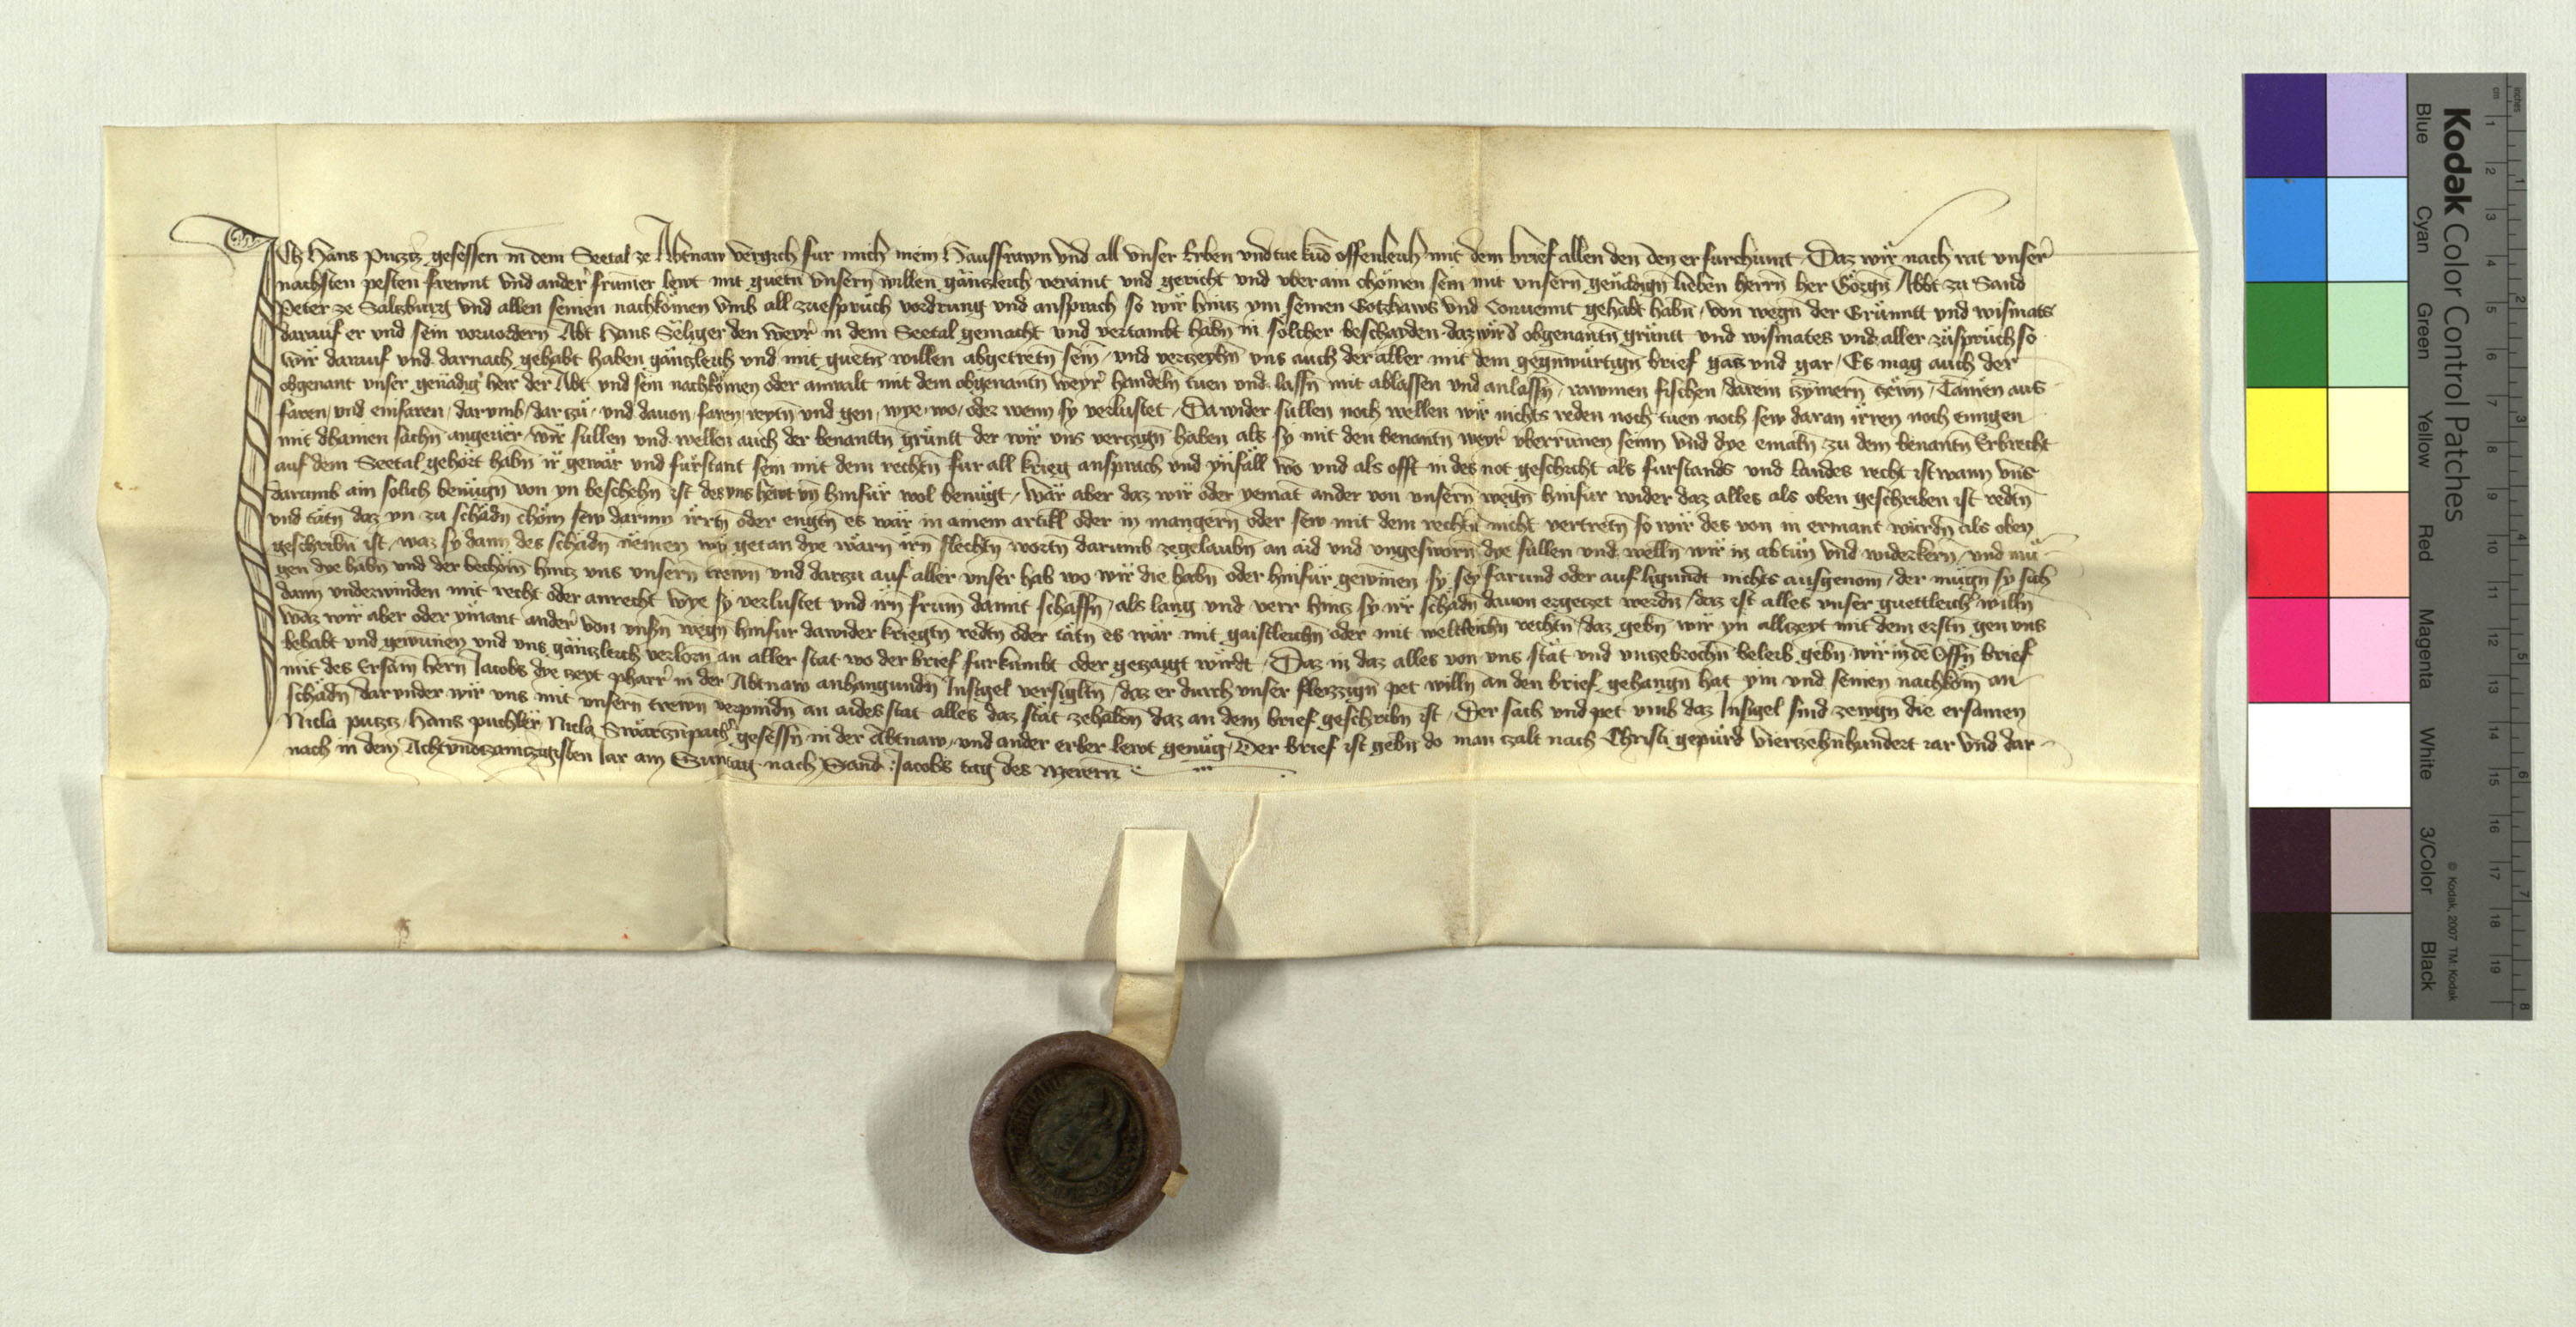 Ich Hans Puczz gesessen in dem Seetal ze Abtnaw vergich fur mich mein Hausfrawn vnd all vnser Erben vnd tue kud offenleich mit dem brief allen den den er furchumt Daz wir nach rat vnser
nachsten pesten frewnt vnd ander frumer lewt mit guetn vnsern willen gänczleich veraint vnd gericht vnd vber ain chomen sein mit vnsern genädign lieben herrn her Görgn Abbt zu Sand
Peter ze Salczburg vnd allen seinen nachkomen vmb all zuespruch vordrung vnd ansprach so wir hincz ym seinen Gotzhaws vnd Conuennt gehabt habn von wegn der Gruntt vnd wismats
darauf er vnd sein voruodern Abt Hans Seliger den weyr in dem Seetal gemacht vnd vertambt habn in solcher beschayden daz wir d obgenantn gruntt vnd wismates vnd aller zuspruch so
wir darauf vnd darnach gehabt haben gänczleich vnd mit guetn willen abgetretn sein vnd verzeyhn vns auch der aller mit dem gegnwurtign brief gancz vnd gar Es mag auch der
obgenant vnser genädig herr der Abt vnd sein nachkomen oder anwalt mit dem obgenantn weyr handeln tuen vnd lassn mit ablassen vnd anlassn rawmen fischen darein zymern zewn Tamen aus
faren vnd einfaren darumb darzu vnd dauon faren reytn vnd gen wye wo oder wenn sy verlustet Dawider sullen noch wellen wir nichts reden noch tuen noch sew daran irren noch engen
mit dhainen sachn angeuer wir sullen vnd wellen auch der benantn gruntt der wir vns verzign haben als sy mit den benantn weyr vberrunen seinn vnd dye emaln zu dem benantn Erbrecht
auf dem Seetal gehort habn ir gewär vnd furstant sein mit dem rechtn fur all krieg ansprach vnd ynfäll wo vnd als offt in des not geschicht als furstands vnd landes recht ist wann vns
darumb ain solich benugn von yn beschehn ist des vns hewt vn hinfur wol benugt Wär aber daz wir oder yemat ander von vnsern wegn hinfur wider daz alles als oben geschriben ist redtn
vnd tätn daz yn zu schadn chom sew darinn irrtn oder engtn es wär in ainem artikl oder in mangern oder sew mit dem rechtn nicht vertretn so wir des von in ermant wurdn als oben
geschribn ist waz sy dann des schadn nemen wy getan dye wärn irn slechtn wortn darumb zegelaubn an aid vnd vngesworn dye sullen vnd welln wir in abtun vnd widerkern vnd mu
gen dye habn vnd der bechom hincz vns vnsern trewn vnd darzu auf aller vnser hab wo wir die habn oder hinfur gewinen sy sey farund oder auf ligundt nichts ausgenom der mugn sy sich
dann vnderwinden mit recht oder anrecht wye sy verlustet vnd irn frum damit schaffn als lang vnd verr hincz sy irr schadn dauon ergetzet werdn daz ist alles vnser guettleich willn
waz wir aber oder ymant ander von vnsn wegn hinfur dawider kriegtn redtn oder tätn es wär mit gaistleichn oder mit weltleichn rechtn daz gebn wir yn allzeyt mit dem erstn gen vns
behabt vnd gewunen vnd vns gänczleich verlorn an aller stat wo der brief furkumbt oder gezaigt wirdt Daz in daz alles von vns stät vnd vnzebrochn beleib gebn wir in de offn brief
mit des Ersam hern Jacobs dye zeyt pharr in der Abtnaw anhangundn Insigel versigltn daz er durch vnser fleizzign pet willn an den brief gehangn hat ym vnd seinen nachkom an
schadn darunder wir vns mit vnsern trewn verpindn an aides stat alles daz stät zehaldn daz an dem brief geschribn ist Der sach vnd pet vmb daz Insigel sind zewgn die ersamen
Nicla puczz Hans puchler Nicla Swarczenpach gesessn in der Abtnaw vnd ander erber lewt genug Der brief ist gebn do man zalt nach Christi gepurd vierzehnhundert iar vnd dar
nach in dem Achtvndzwaintzigisten Jar am Suntag nach Sand Jacobs tag des Merern
Kodak Color Control Patches
© Kodak, 2007 TM: Kodak
Blue Cyan Green Yellow Red Magenta White 3/Color Black
cm 1 2 3 4 5 6 7 8 9 10 11 12 13 14 15 16 17 18 19
inches 1 2 3 4 5 6 7 8